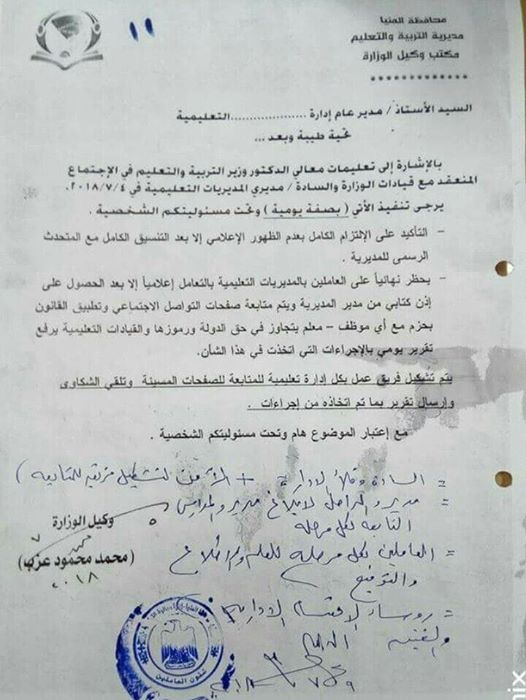 ١١
محافظة المنيا
مديرية التربية والتعليم
مكتب وكيل الوزارة
************
السيد الأستاذ / مدير عام إدارة ....................التعليمية
تحية طيبة وبعد ...
بالإشارة إلى تعليمات معالي الدكتور وزير التربية والتعليم في الإجتماع
المنعقد مع قيادات الوزارة والسادة / مديري المديريات التعليمية في ٢٠١٨/٧/٤.
يرجى تنفيذ الأتي ( بصفة يومية ) وتحت مسئوليتكم الشخصية .
– التأكيد على الإلتزام الكامل بعدم الظهور الإعلامي إلا بعد التنسيق الكامل مع المتحدث
الرسمى للمديرية .
– يحظر نهائياً على العاملين بالمديريات التعليمية بالتعامل إعلامياً إلا بعد الحصول على
إذن كتابي من مدير المديرية ويتم متابعة صفحات التواصل الاجتماعي وتطبيق القانون
بحزم مع أي موظف – معلم يتجاوز في حق الدولة ورموزها والقيادات التعليمية يرفع
تقرير يومي بالإجراءات التي اتخذت في هذا الشأن.
يتم تشكيل فريق عمل بكل إدارة تعليمية للمتابعة للصفحات المسيئة وتلقي الشكاوى
وإرسال تقرير بما تم اتخاذه من إجراءات .
مع إعتبار الموضوع هام وتحت مسئوليتكم الشخصية .
= السادة وكلاء الادارة + الأمن لتشكيل فرقه للمتابعه )
= مديرو المراحل لابلاغ مديرو المدارس
التابعه لكل مرحله
وكيل الوزارة
(محمد محمود عزب)
٢٠١٨
= العاملين بكل مرحله للعلم والاطلاع
والتوقيع
= روساء الاقسام الاداريه
والفنيه
شئون العاملين